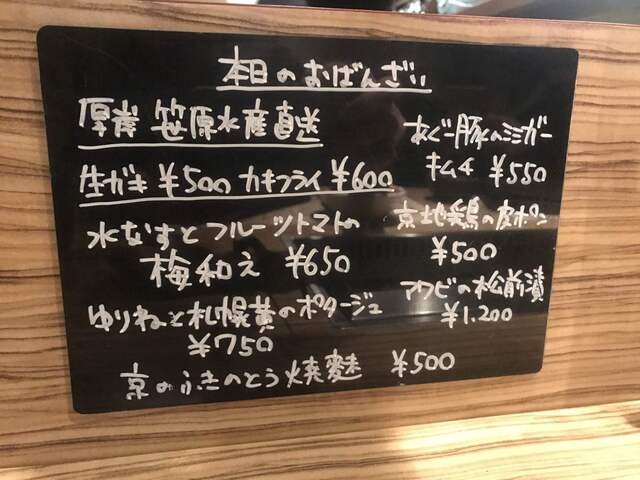 本日のおばんざい
厚岸 笹原水産直送
生ガキ ¥500 カキフライ ¥600
水なすとフルーツトマトの
梅和え ¥650
ゆりねと札幌黄のポタージュ
¥750
京のふきのとう焼麩 ¥500
あぐー豚のミミガー
キムチ ¥550
京地鶏の皮ポン
¥500
アワビの松前漬
¥1.200